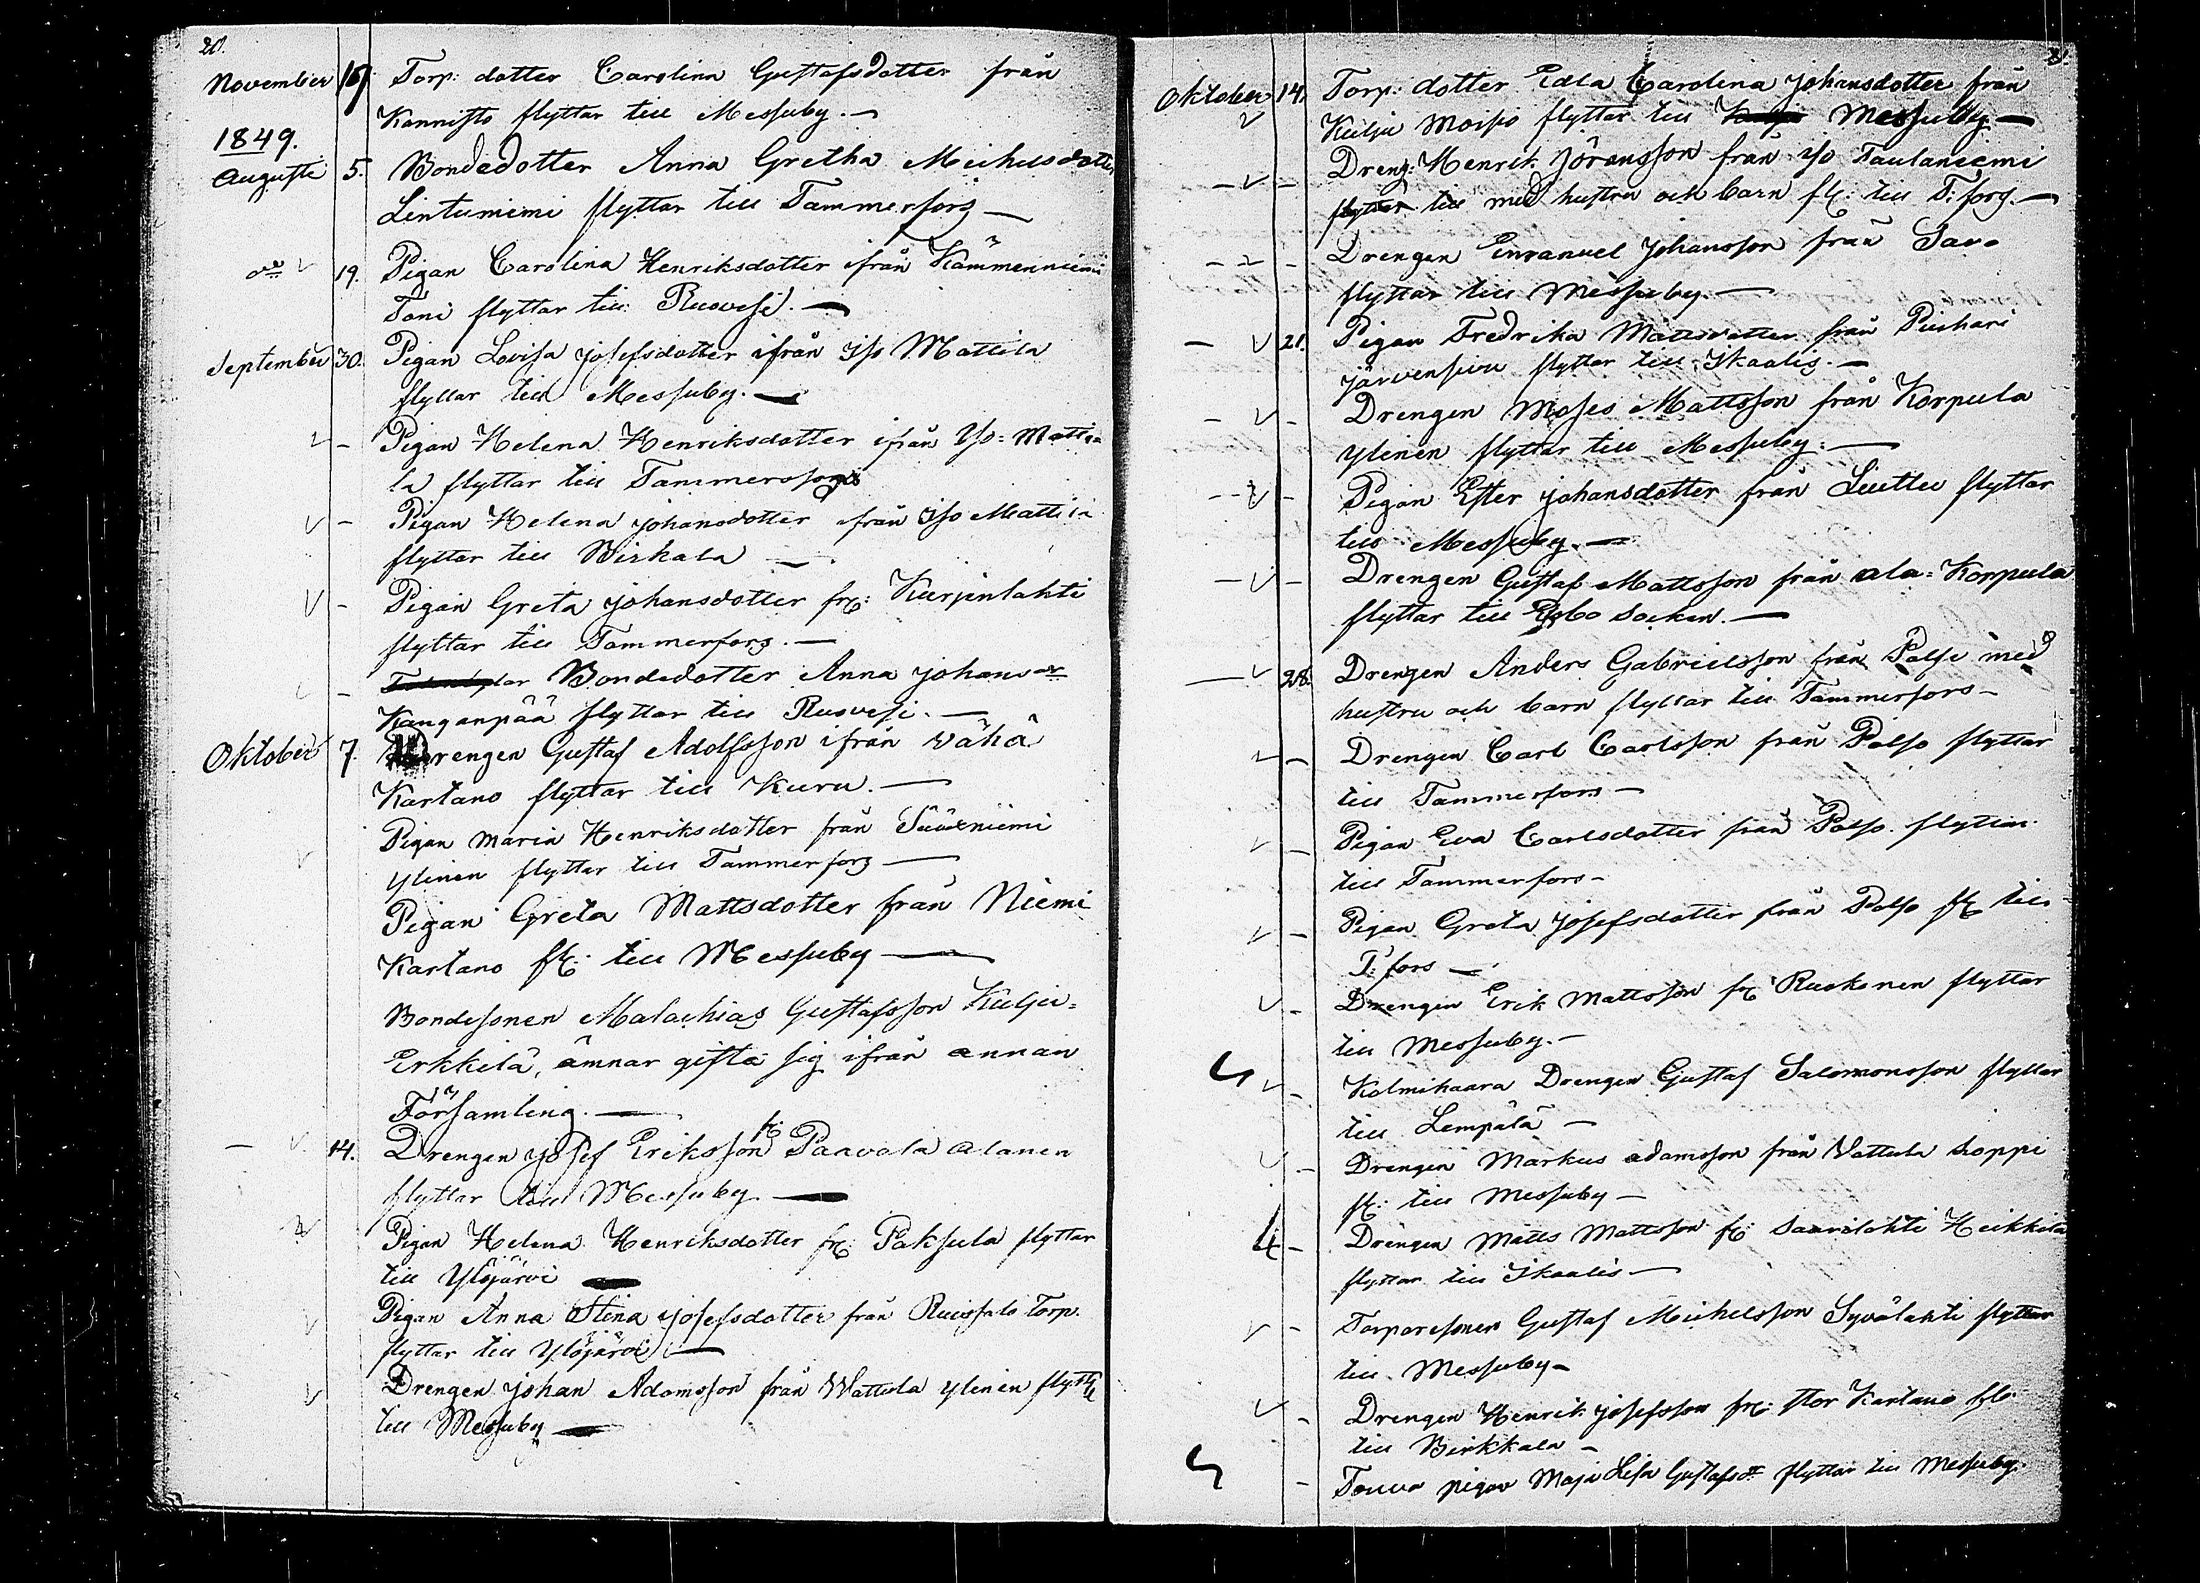 20.
November 16. Torp: dotter Carolina Gustafsdotter från
Kannisto flyttar till Messuby. —
1849.
Augusti 5. Bondedotter Anna Gretha Michelsdotter
Lintuniemi flyttar till Tammerfors —
19. Pigan Carolina Henriksdotter ifrån Kämmenniemi
Toni flyttar till Ruovesi. —
September 30. Pigan Lovisa Josefsdotter ifrån Iso Mattila
flyttar till Messuby. —
Pigan Helena Henriksdotter ifrån Iso= Matti=
la flyttar till Tammerfors
Pigan Helena Johansdotter från Iso Mattila
flyttar till Birkala —
Pigan Greta Johansdotter fr: Kurjenlahti
flyttar till Tammerfors. —
Bondedotter Anna Johansdr
Kanganpää flyttar till Ruovesi. —
Oktober 7. Drengen Gustaf Adolfsson ifrån Vähä
Kartano flyttar till Kuru. —
Pigan Maria Henriksdotter från Sääxniemi
Ylinen flyttar till Tammerfors —
Pigan Greta Mattsdotter från Niemi
Kartano fl: till Messuby —
Bondesonen Malachias Gustafsson Kulju=
Erkkilä, ämnar gifta sig ifrån annan
Församling. —
14. Drengen Josef Eriksson fr: Paavola Alanen
flyttar till Messuby. —
Pigan Helena Henriksdotter fr: Paksula flyttar
till Ylöjärvi —
Pigan Anna Stina Josefsdotter från Ruissalo Torp.
flyttar till Ylöjärvi —
Drengen Johan Adamsson från Wattula Ylinen flytt:
till Messuby —
Oktober 14. Torp: dotter Edla Carolina Johansdotter från
Kulju Moisio flyttar till Messuby —
Dreng: Henrik Jöransson från Iso Taulaniemi
flyttar till med hustru och barn fl: till T:fors. —
Drengen Emanuel Johansson från Savo
flyttar till Messuby. —
21. Pigan Fredrika Mattsdotter från Puihari
Järvensivu flyttar till Ikaalis. —
Drengen Moses Mattsson från Korpula
Ylinen flyttar till Messuby. —
Pigan Ester Johansdotter från Liuttu flyttar
till Messuby. —
Drengen Gustaf Mattsson från ala= Korpula
flyttar till Esbo Socken. —
28. Drengen Anders Gabrielsson från Palso med
hustru och barn flyttar till Tammerfors —
Drengen Carl Carlsson från Palso flyttar
till Tammerfors —
Pigan Eva Carlsdotter från Palso flyttar
till Tammerfors —
Pigan Greta Josefsdotter från Palso fl: till
T: fors —
Drengen Erik Mattsson fr: Ruokonen flyttar
till Messuby. —
Kolmihaara Drengen Gustaf Salomonsson flyttar
till Lempälä —
Drengen Markus Adamsson från Wattula Soppi
fl: till Messuby —
Drengen Matts Mattsson fr: Saarilahti Heikkilä
flyttar till Ikaalis —
Torparesonen Gustaf Michelsson Syvälahti flyttar
till Messuby —
Drengen Henrik Josefsson fr: Stor Kartano fl:
till Birkkala —
pigan Maja Lisa Gustafsdr flyttar till Messuby.